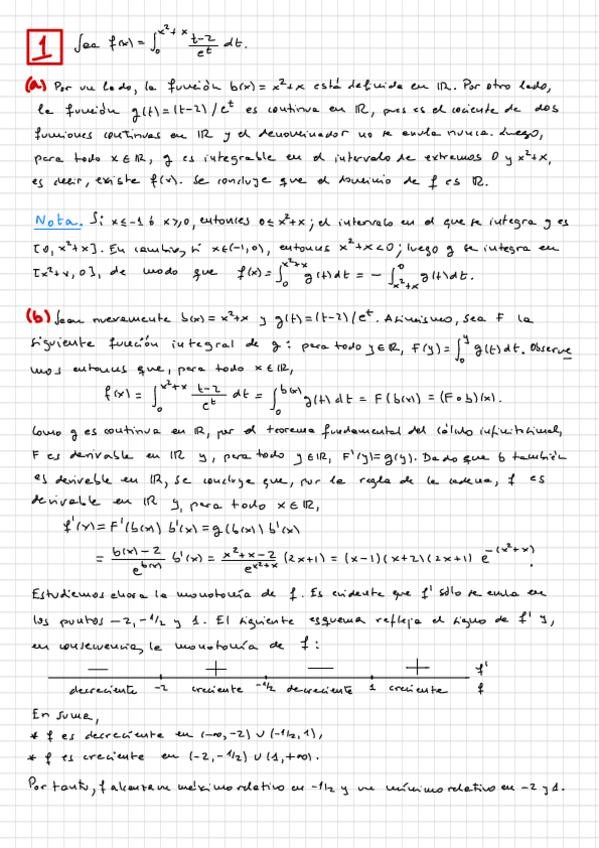 1 Sea f(x) = ∫₀^{x²+x} (t-2)/e^t dt.
(a) Por un lado, la función b(x) = x²+x está definida en ℝ. Por otro lado,
la función g(t) = (t-2)/e^t es continua en ℝ, pues es el cociente de dos
funciones continuas en ℝ y el denominador no se anula nunca. Luego,
para todo x∈ℝ, g es integrable en el intervalo de extremos 0 y x²+x,
es decir, existe f(x). Se concluye que el dominio de f es ℝ.
Nota. Si x≤-1 ó x≥0, entonces 0≤x²+x; el intervalo en el que se integra g es
[0, x²+x]. En cambio, si x∈(-1,0), entonces x²+x<0; luego g se integra en
[x²+x, 0], de modo que f(x) = ∫₀^{x²+x} g(t)dt = - ∫_{x²+x}^0 g(t)dt.
(b) Sean nuevamente b(x) = x²+x y g(t) = (t-2)/e^t. Asimismo, sea F la
siguiente función integral de g: para todo y∈ℝ, F(y) = ∫₀^y g(t)dt. Observe
mos entonces que, para todo x∈ℝ,
f(x) = ∫₀^{x²+x} (t-2)/e^t dt = ∫₀^{b(x)} g(t)dt = F(b(x)) = (F∘b)(x).
Como g es continua en ℝ, por el teorema fundamental del cálculo infinitesimal,
F es derivable en ℝ y, para todo y∈ℝ, F'(y) = g(y). Dado que b también
es derivable en ℝ, se concluye que, por la regla de la cadena, f es
derivable en ℝ y, para todo x∈ℝ,
f'(x) = F'(b(x)) b'(x) = g(b(x)) b'(x)
= (b(x)-2)/e^{b(x)} b'(x) = (x²+x-2)/e^{x²+x} (2x+1) = (x-1)(x+2)(2x+1) e^{-(x²+x)}.
Estudiemos ahora la monotonía de f. Es evidente que f' sólo se anula en
los puntos -2, -1/2 y 1. El siguiente esquema refleja el signo de f' y,
en consecuencia, la monotonía de f:
— + — + f'
decreciente -2 creciente -1/2 decreciente 1 creciente f
En suma,
* f es decreciente en (-∞,-2) ∪ (-1/2,1),
* f es creciente en (-2,-1/2) ∪ (1,+∞).
Por tanto, f alcanza un máximo relativo en -1/2 y un mínimo relativo en -2 y 1.